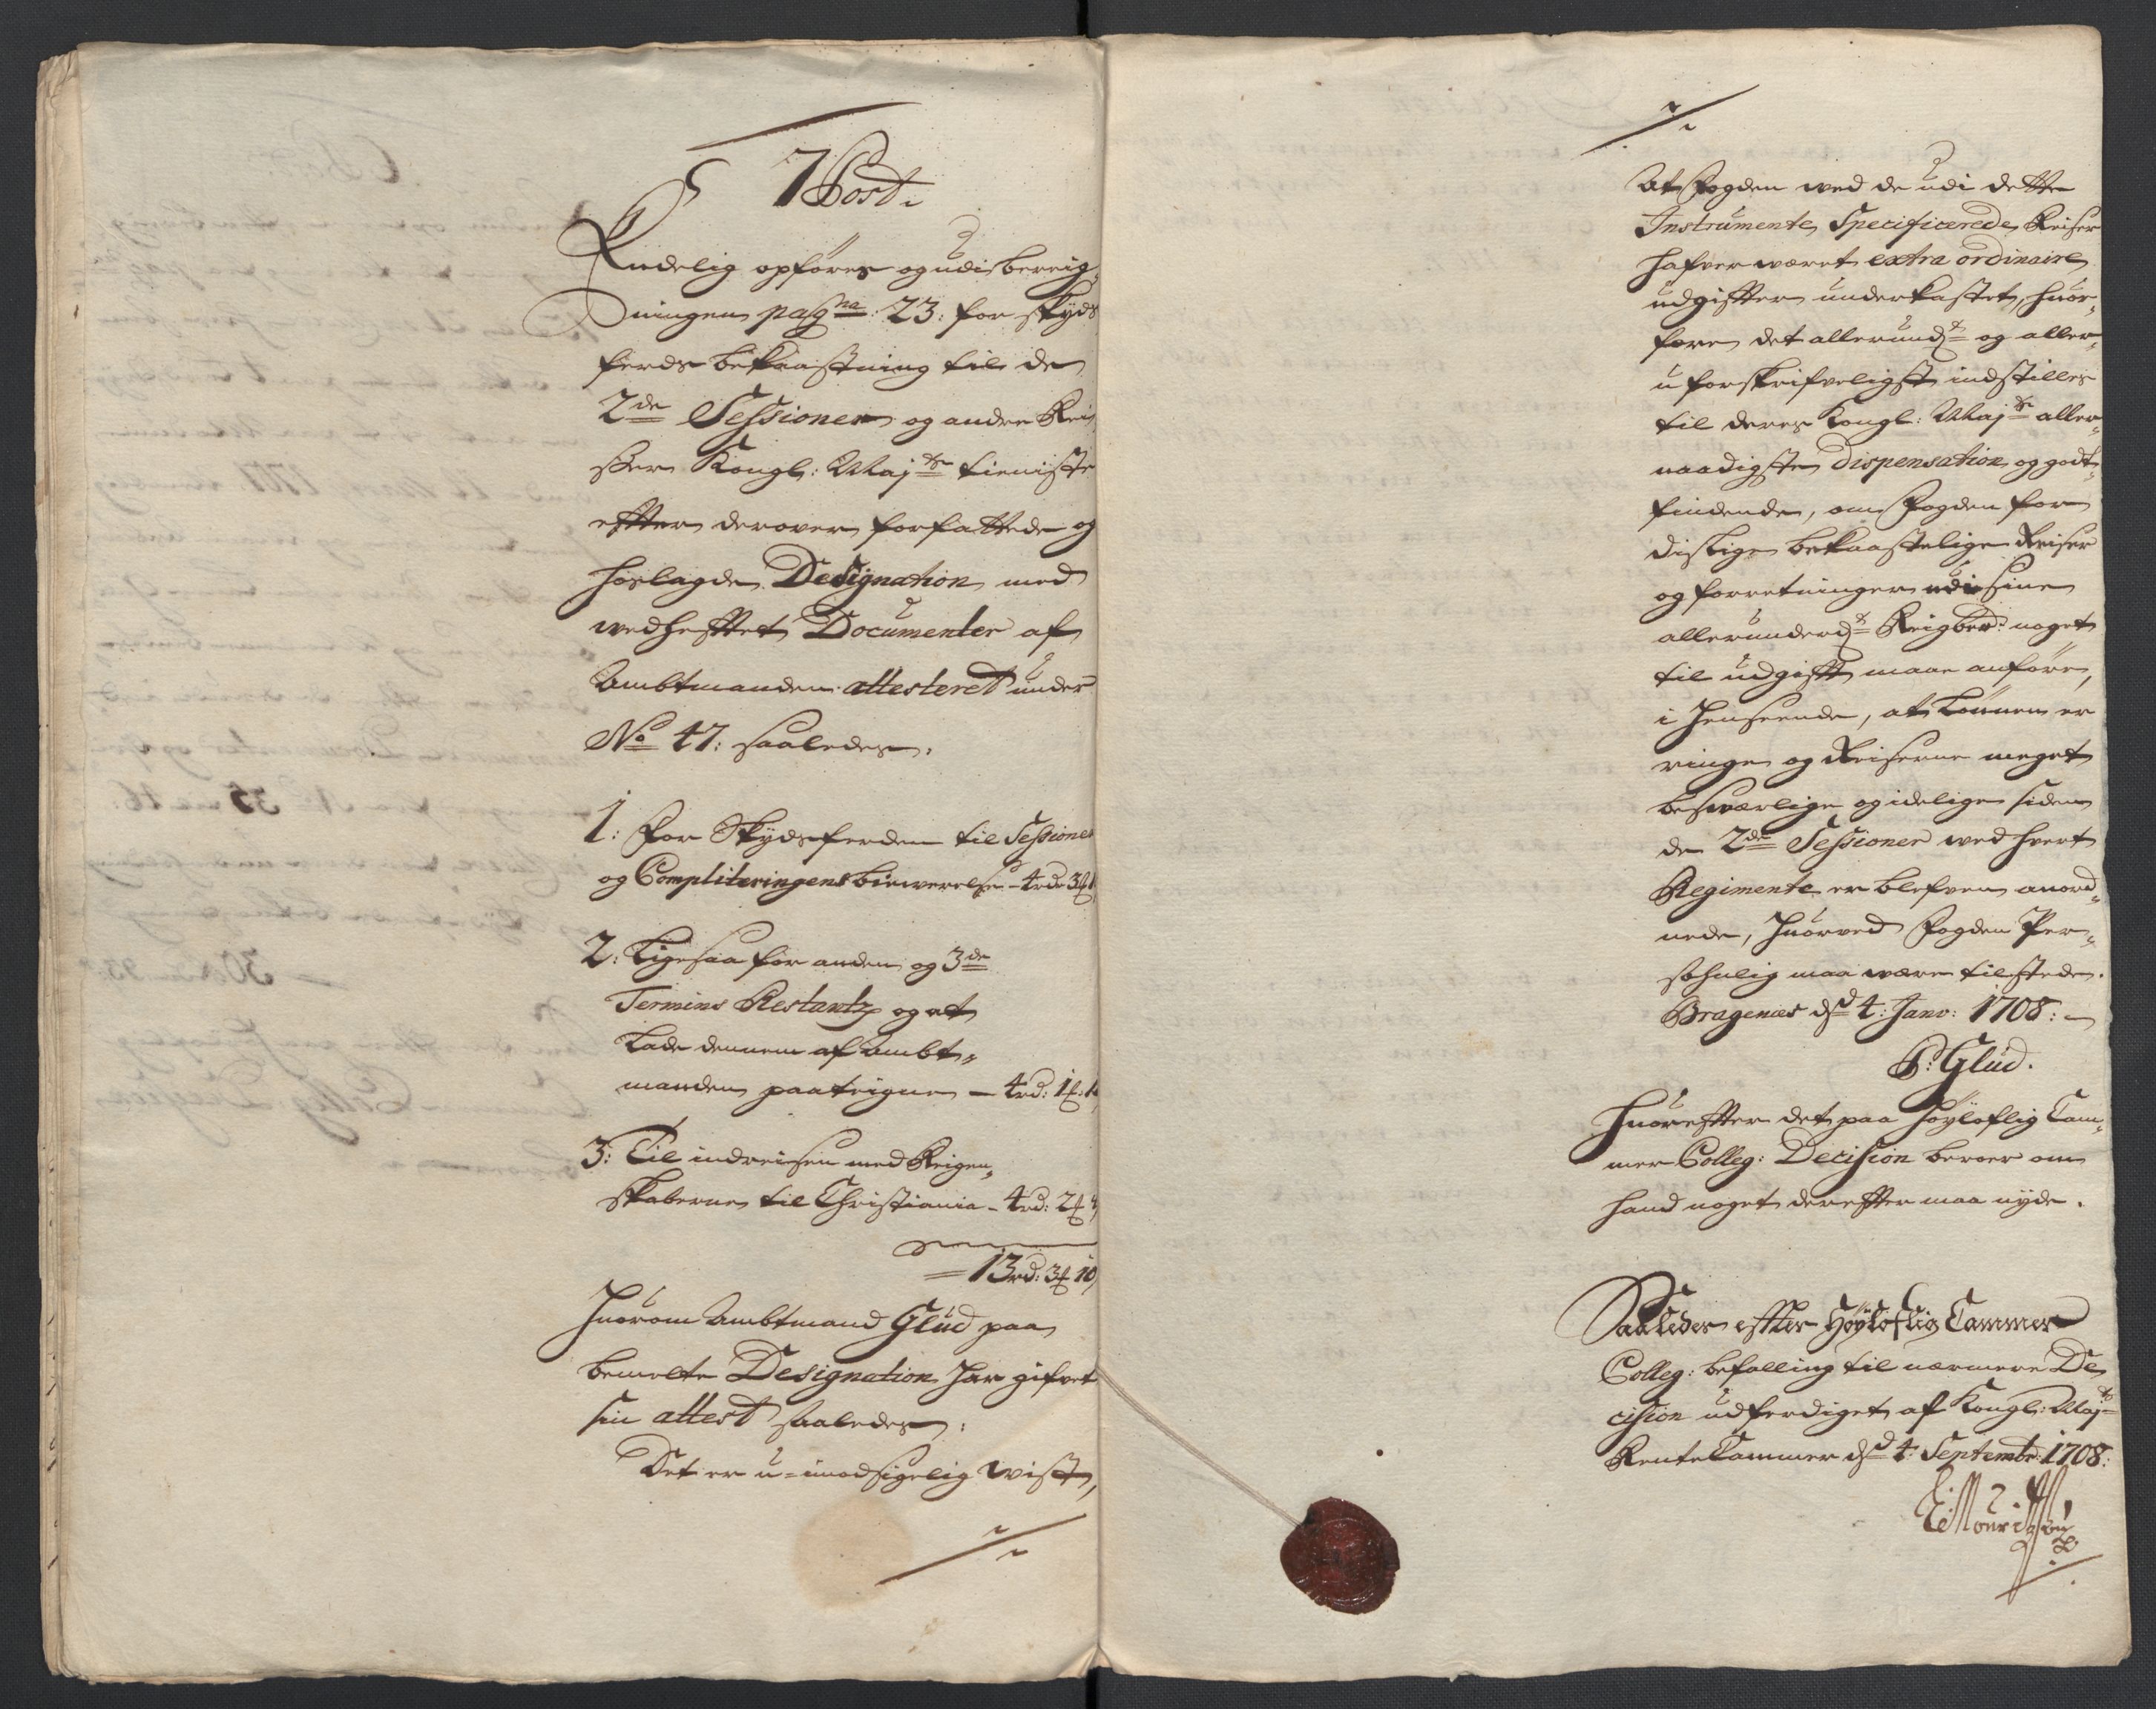 7 Post.
Endelig opføres og udi bereig-
ningen pagna: 23: for skyds
ferds bekaastning til de
2de Sessioner og andre Rei
ser Kongl: Maj:ts tieniste
effter derover forfattede og
hoslagde Designation med
wedhefftet Documenter af
Ambtmanden attesteret under
No 47: saaledes.
1: For Skydsferden til Sessione
og Compliteringens biewerelse - 4rdr 3
2: Ligesaa for anden og 3de
Termins Restantz og at
lade dennem af Ambt-
manden paateigne - 4rd: 1
3: Til indreisen med Reigen-
skaberne til Christiania - 4rd: 2
= 13rd: 3 10
Huorom Ambtmand Glud paa
bemelte Designation har gifvet
sin attest saaledes:
Det er u-imodsigelig wist,
At Fogden wed de udi dette
Instrumente Specificerede Reiser
hafver wæret extra ordinaire
udgiffter underkastet, huor-
fore det allerundt og aller-
uforskrifveligst indstilles
til deres Kongl: Maj:ts aller-
naadigste dispensation og godt-
findende, om Fogden for
dislige bekaastelige Reiser
og forretninger udi sine
allerunderdt Reigber: noget
til udgifft maae anføre,
i Henseende, at Lønnen er
ringe og Reiserne meget
besværlige og idelige siden
de 2de Sessioner wed hvert
Regimente er blefven anord-
nede, huorved Fogden Per-
sohnlig maa være tilstede.
Bragenæs dd 4: Janv: 1708:
P: Glud.
Huoreffter det paa Høyloflig Cam-
mer Colleg: Decision beroer om
hand noget dereffter maa nyde.
Saaledes effter Høyloflig Cammer
Colleg: befalling til nærmere De
cision udferdiget af Kongl: Maj:ts
Rente Cammer dd 4: Septembr: 1708: